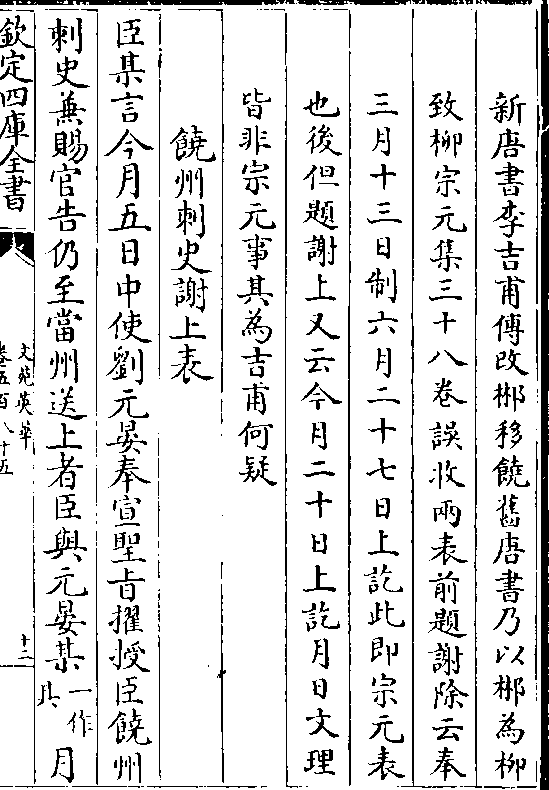 新唐書李吉甫傳改郴移饒舊唐書乃以郴為柳
致柳宗元集三十八卷誤收兩表前題謝除云奉
三月十三日制六月二十七日上訖此即宗元表
也後但題謝上又云今月二十日上訖月日文理
皆非宗元事其為吉甫何疑
饒州刺史謝上表
臣某言今月五日中使劉元晏奉宣聖旨擢授臣饒州
刺史兼賜官告仍至當州送上者臣與元晏某一作其月
欽定四庫全書
文苑英華
卷五百八十五
十二